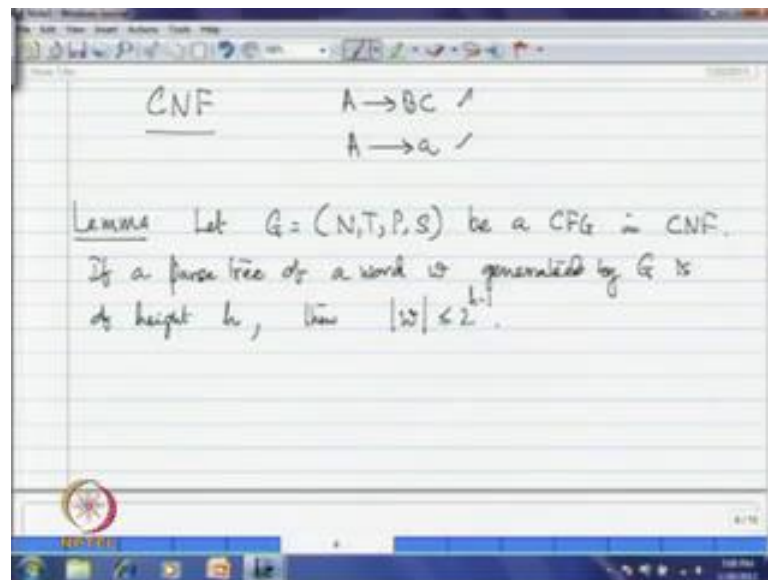 CNF A → BC ✓
A → a ✓
Lemma Let G = (N, T, P, S) be a CFG in CNF.
If a parse tree of a word w generated by G is
of height h, then |w| ≤ 2^{h-1}.
NPTEL